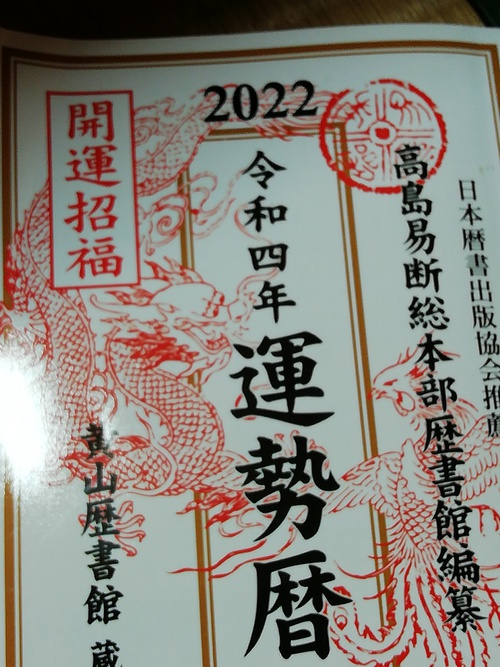 2022
日本暦書出版協会推薦
高島易断総本部歴書館編纂
令和四年
運勢暦
開運招福
黄山歴書館 蔵